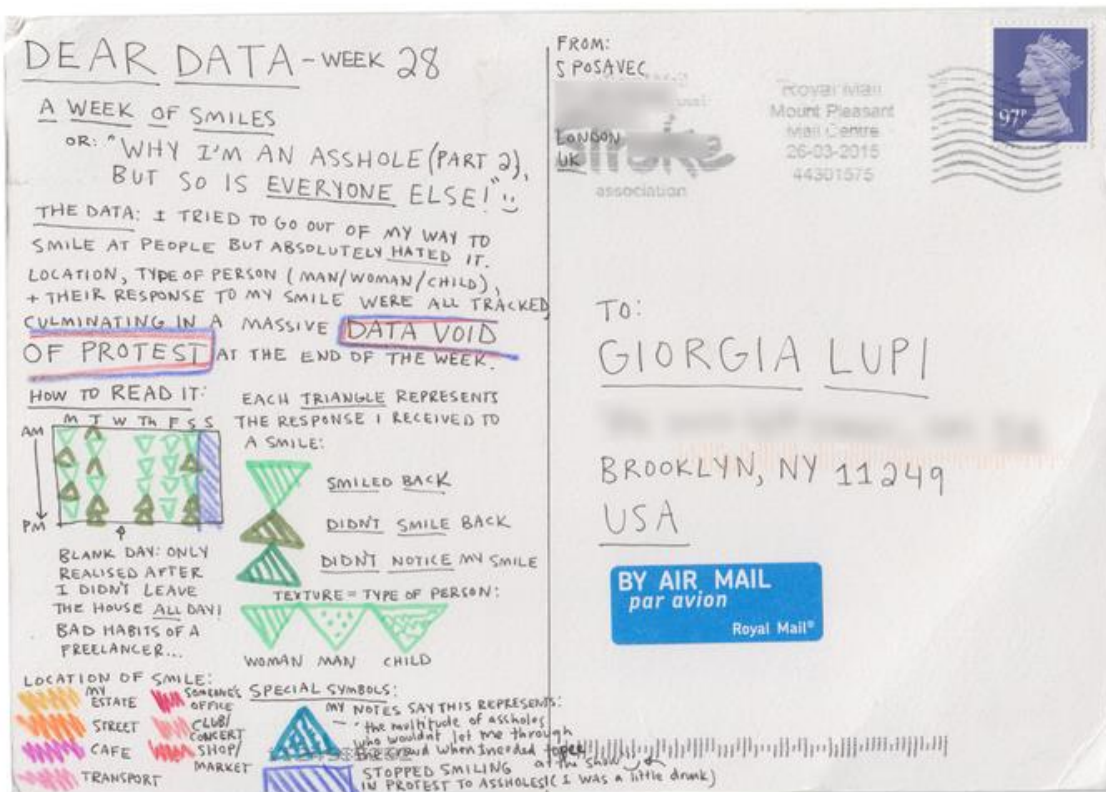 DEAR DATA - WEEK 28
A WEEK OF SMILES
OR: "WHY I'M AN ASSHOLE (PART 2),
BUT SO IS EVERYONE ELSE!"
THE DATA: I TRIED TO GO OUT OF MY WAY TO
SMILE AT PEOPLE BUT ABSOLUTELY HATED IT.
LOCATION, TYPE OF PERSON (MAN/WOMAN/CHILD),
+ THEIR RESPONSE TO MY SMILE WERE ALL TRACKED
CULMINATING IN A MASSIVE DATA VOID
OF PROTEST AT THE END OF THE WEEK.
HOW TO READ IT:
M T W Th F S S
AM
PM
BLANK DAY: ONLY
REALISED AFTER
I DIDN'T LEAVE
THE HOUSE ALL DAY!
BAD HABITS OF A
FREELANCER...
EACH TRIANGLE REPRESENTS
THE RESPONSE I RECEIVED TO
A SMILE:
SMILED BACK
DIDN'T SMILE BACK
DIDN'T NOTICE MY SMILE
TEXTURE = TYPE OF PERSON:
WOMAN MAN CHILD
LOCATION OF SMILE:
MY
ESTATE
STREET
CAFE
TRANSPORT
SOMEONE'S
OFFICE
CLUB/
CONCERT
SHOP/
MARKET
SPECIAL SYMBOLS:
MY NOTES SAY THIS REPRESENTS:
the multitude of assholes
who wouldn't let me through
the crowd when I needed to pee
at the show
STOPPED SMILING
IN PROTEST TO ASSHOLES! (I WAS A little drunk)
FROM:
S POSAVEC
LONDON
UK
association
Royal Mail
Mount Pleasant
Mail Centre
26-03-2015
44301575
97P
TO:
GIORGIA LUPI
BROOKLYN, NY 11249
USA
BY AIR MAIL
par avion
Royal Mail®